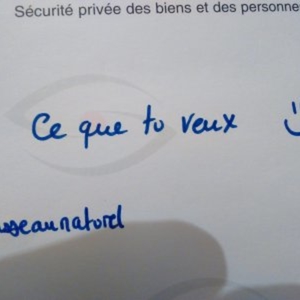 Sécurité privée des biens et des personne
Ce que tu veux :)
sseaunaturel